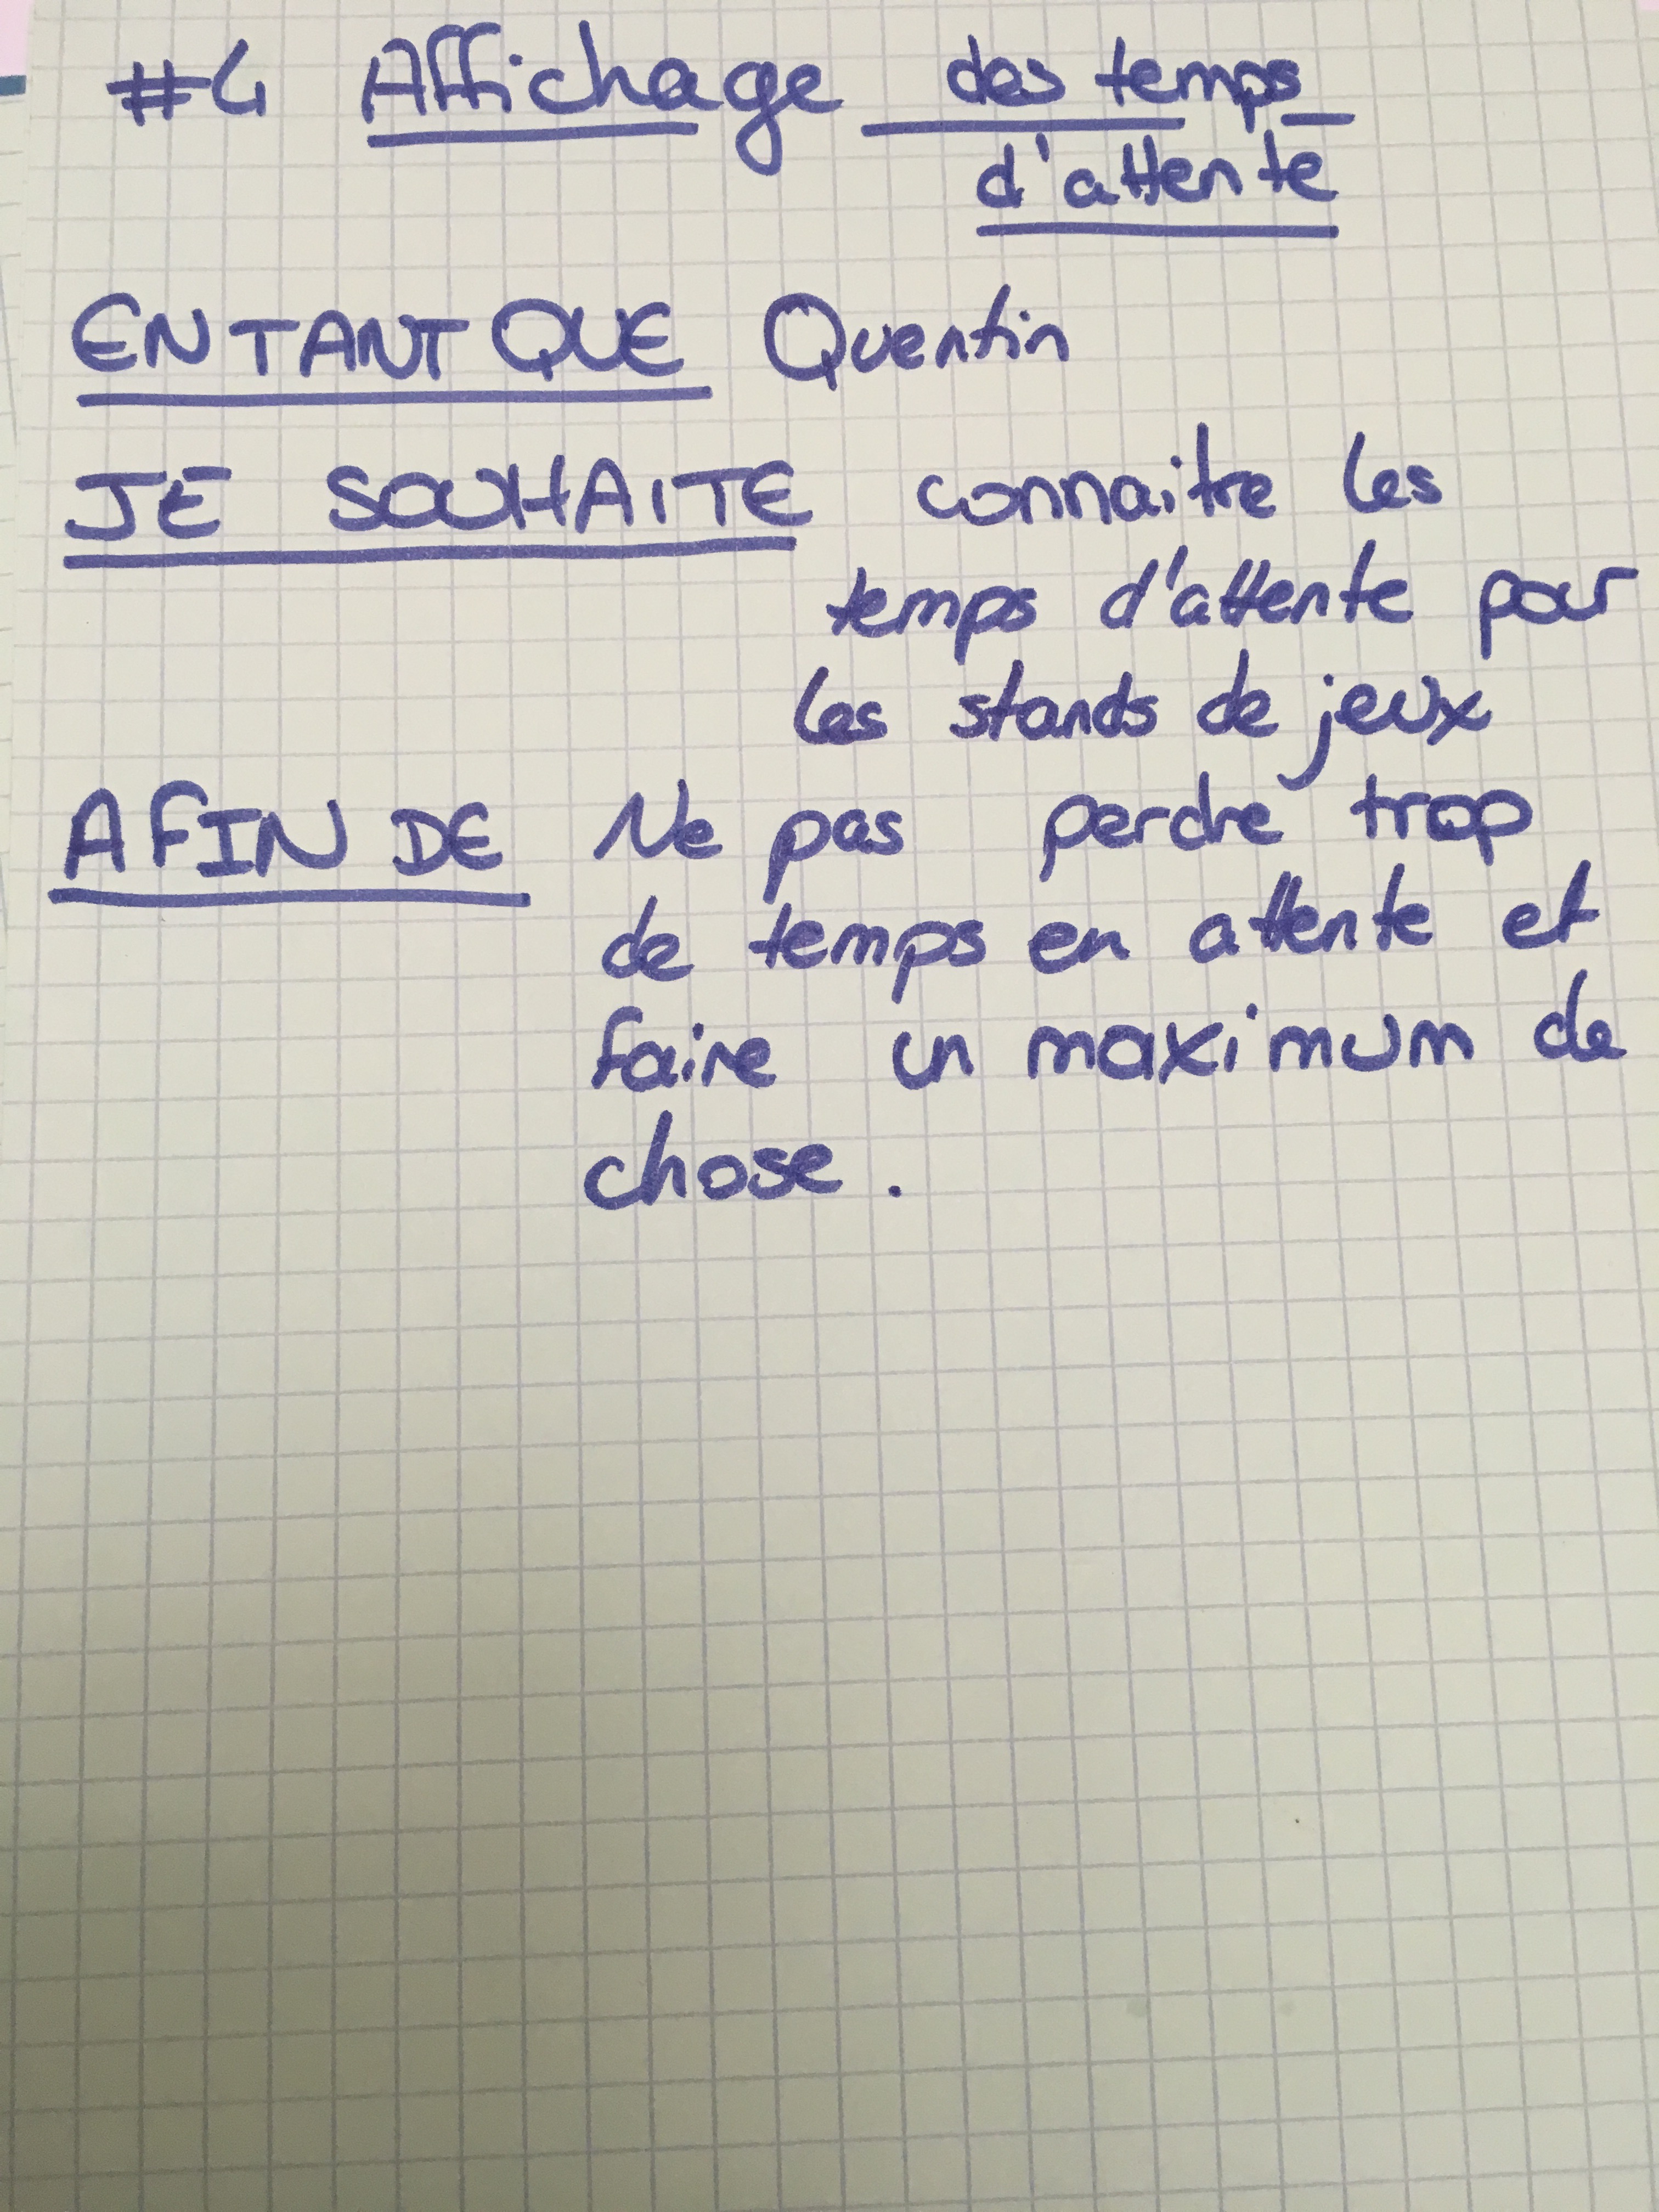 #4 Affichage des temps
d'attente
EN TANT QUE Quentin
JE SOUHAITE connaitre les
temps d'attente pour
les stands de jeux
AFIN DE Ne pas perdre trop
de temps en attente et
faire un maximum de
chose.